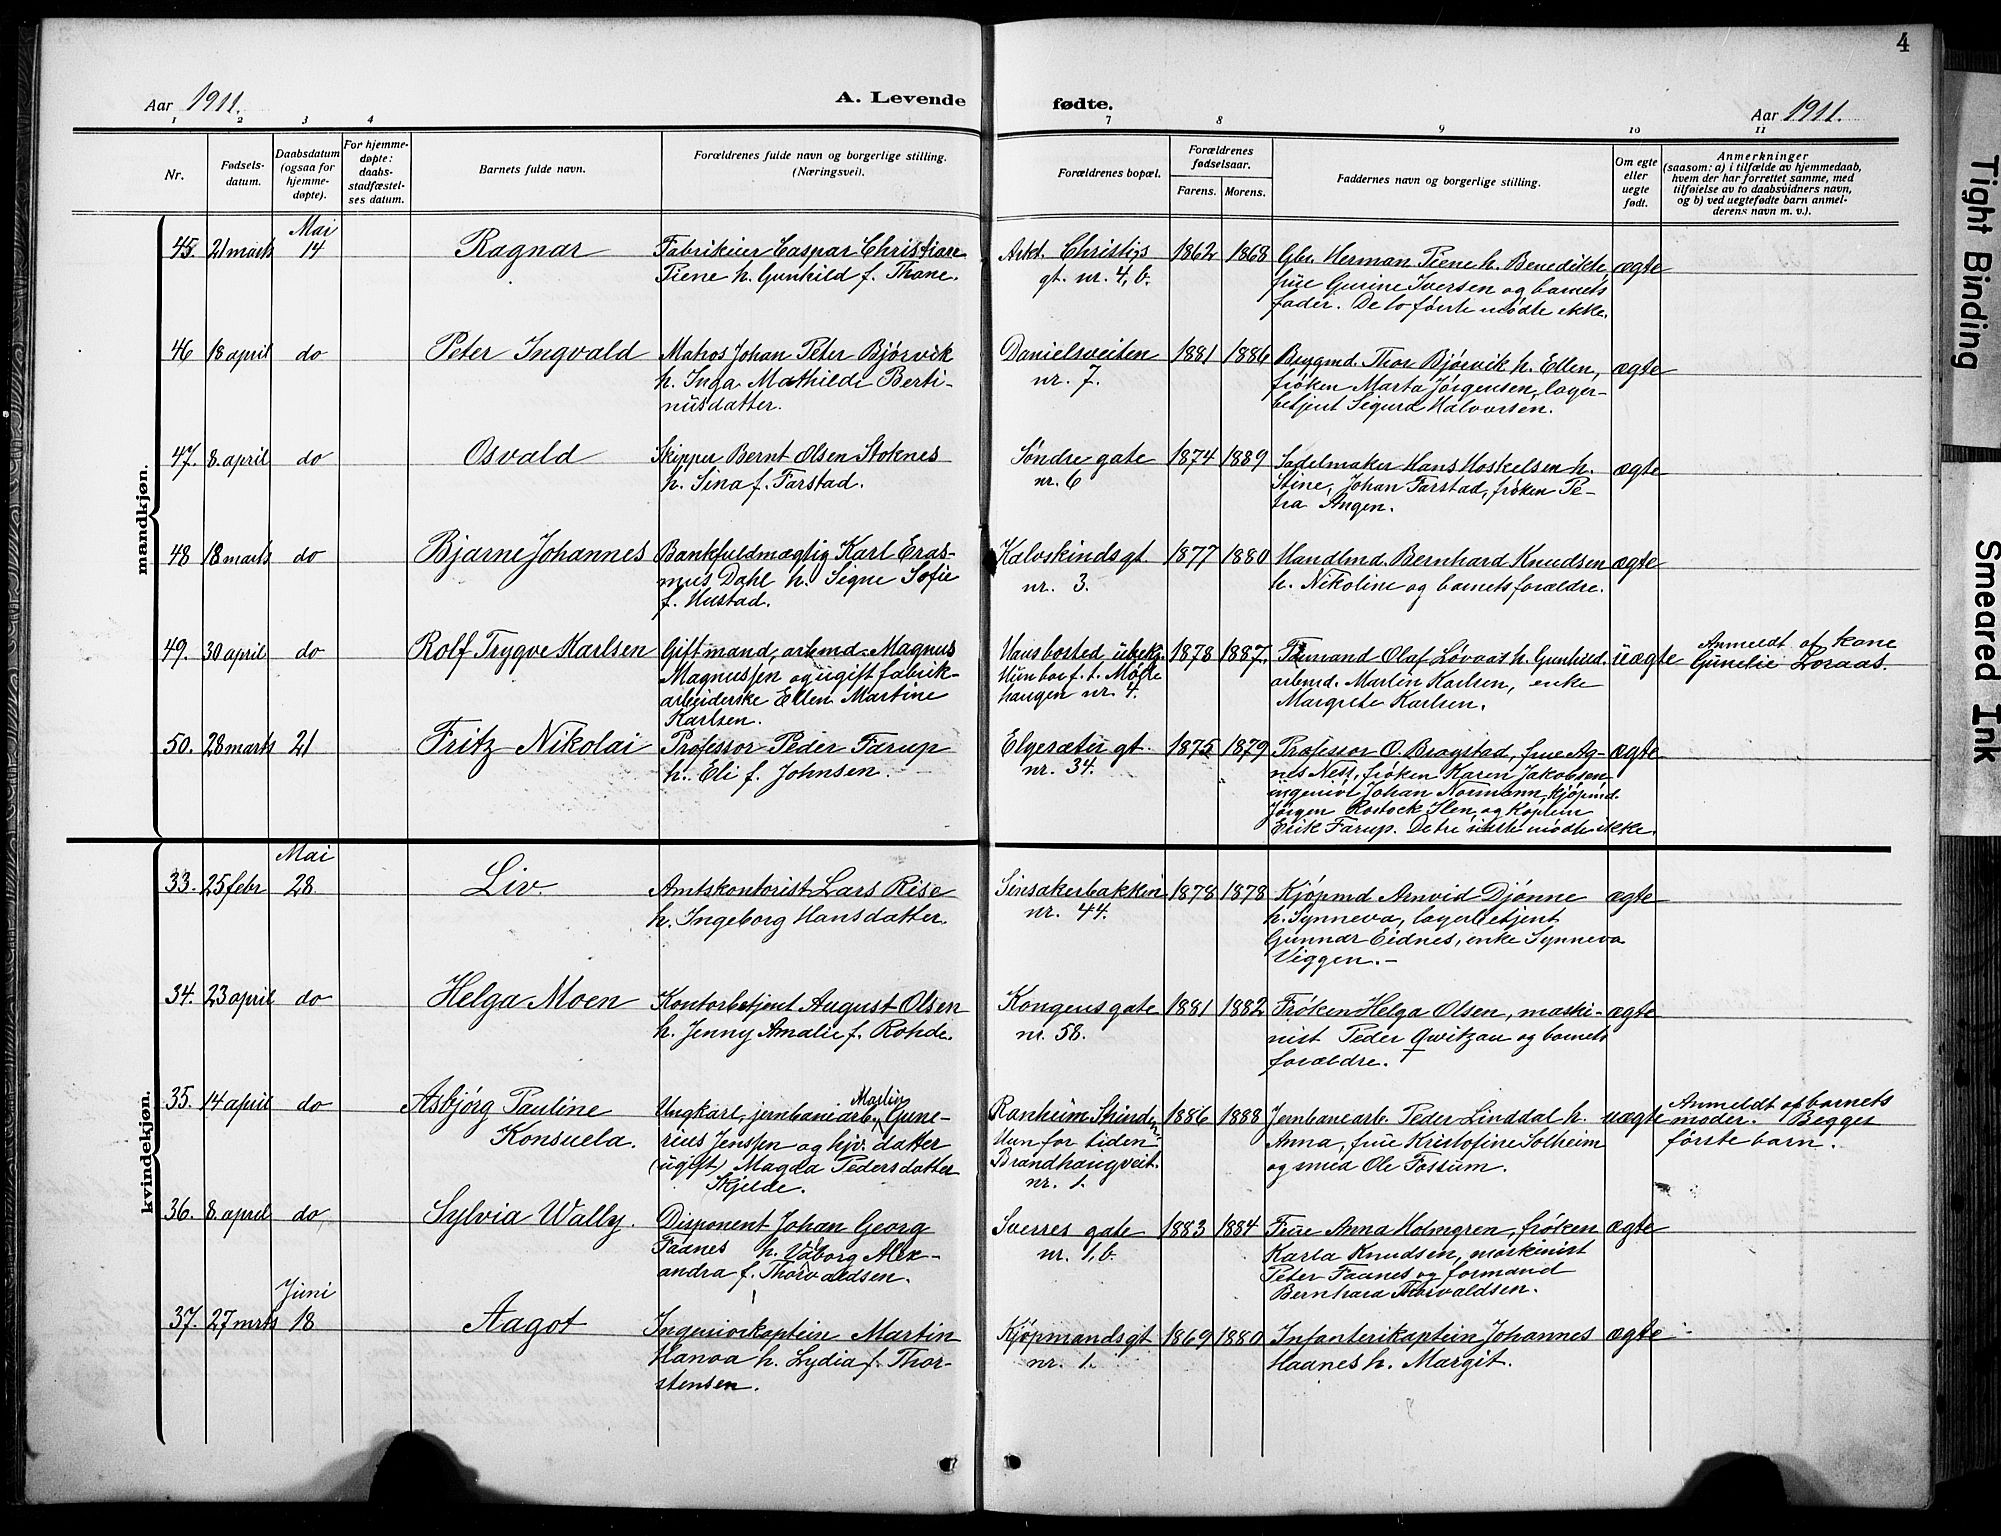 4
Aar 1911.
A. Levende fødte.
Aar 1911.
1 2 3 4 7 8 9 10 11
Nr.
Fødsels-
datum.
Daabsdatum
(ogsaa for
hjemme-
døpte).
For hjemme-
døpte:
daabs-
stadfæstel-
ses datum.
Barnets fulde navn.
Forældrenes fulde navn og borgerlige stilling.
(Næringsvei).
Forældrenes bopæl.
Forældrenes
fødselsaar.
Farens. Morens.
Faddernes navn og borgerlige stilling.
Om egte
eller
uegte
født.
Anmerkninger
(saasom: a) i tilfælde av hjemmedaab,
hvem der har forrettet samme, med
tilføielse av to daabsvidners navn,
og b) ved uegtefødte barn anmel-
derens navn m. v.).
mandkjøn.
Mai
45. 21 marts 14 Ragnar
Fabrikeier Caspar Christian
Tiene h. Gunhild f. Thane.
Arkt. Christies
gt. nr. 4, b.
1862 1868
Gbr. Herman Tiene h. Benedikte,
frue Gurine Iversen og barnets
fader. De to første mødte ikke.
ægte
46 18 april do Peter Ingvald
Matros Johan Peter Bjørvik
h. Inga Mathilde Berti-
nusdatter.
Danielsveiten
nr. 7.
1881 1886
Brygmd. Thor Bjørvik h. Ellen,
frøken Marta Jørgensen, lager-
betjent Sigurd Halvorsen.
ægte
47. 8. april do Osvald
Skipper Bernt Olsen Stoknes
h. Sina f. Farstad.
Søndre gate
nr. 6
1874 1889
Sadelmaker Hans Hoskelsen h.
Stine, Johan Farstad, frøken Pe-
tra Angen.
ægte
48 18 marts do Bjarne Johannes
Bankfuldmægtig Karl Eras-
mus Dahl h. Signe Sofie
f. Hustad.
Kalvskindsgt
nr. 3.
1877 1880
Handlmd. Bernhard Knudsen
h. Nikoline og barnets forældre.
ægte
49. 30 april do Rolf Trygve Karlsen
Gift mand, arbmd. Magnus
Magnussen og ugift fabrik-
arbeiderske Ellen Martine
Karlsen.
Hans bosted ubek.
Hun bor f. t. Mølle
haugen nr. 4.
1878 1887.
Olaf Løvaas h. Gunhild,
arbmd. Martin Karlsen, enke
Margrete Karlsen.
uægte
Anmeldt af kone
Gunelie Loraas
50. 28 marts 21 Fritz Nikolai
Professor Peder Farup
h. Eli f. Johnsen.
Elgesæter gt.
nr. 34.
1875 1879
Professor O. Bragstad, frue Ag-
nes Ness, frøken Karen Jakobsen,
ingeniør Johan Normann, kjøpmd.
Jørgen Rostock Ilen, og Kaptein
Erik Farup. De tre sidste mødte ikke.
ægte
kvindekjøn.
Mai
33. 25 febr 28 Liv.
Amtskontorist Lars Rise
h. Ingeborg Hansdatter.
Sinsakerbakken
nr. 44.
1878 1878
Kjøpmd Arnvid Djønne
h. Synneva, lagerbetjent
Gunnar Eidnes, enke Synneva
Viggen.-
ægte
34. 23 april do Helga Moen
Kontorbetjent August Olsen
h. Jenny Amalie f. Rohde.
Kongens gate
nr. 58.
1881 1882
Frøken Helga Olsen, maski-
nist Peder Qwitzau og barnets
forældre.
ægte
35. 14 april do Asbjørg Pauline
Konsuela.
Ungkarl, jernbanearb. Martin Gune-
rius Jenssen og hjv. datter
(ugift) Magda Pedersdatter
Skjelde.
Ranheim Strinden
Hun for tiden
Brandhaugveit.
nr. 1.
1886 1888
Jernbanearb. Peder Linddal h.
Anna, frue Kristofine Solheim
og smed Ole Fossum.
uægte
Anmeldt af barnets
moder. Begges
første barn.
36. 8. april do, Sylvia Wally.
Disponent Johan Georg
Faanes h. Valborg Alex-
andra f. Thorvaldsen.
Sverres gate
nr. 1, b.
1883 1884
Frue Anna Holmgren, frøken
Karla Knudsen, maskinist
Peter Faanes og formand
Bernhard Thorvaldsen.
ægte
Juni
37. 27 mrts 18 Aagot
Ingeniørkaptein Martin
Hanoa h. Lydia f. Thor-
stensen.
Kjøpmandsgt
nr. 1.
1869 1880
Infanterikaptein Johannes
Haanes h. Margit.
ægte
Tight Binding
Smeared Ink